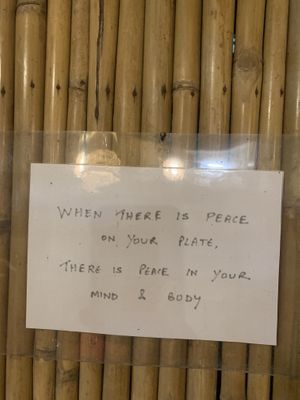 WHEN THERE IS PEACE
ON YOUR PLATE,
THERE IS PEACE IN YOUR
MIND & BODY